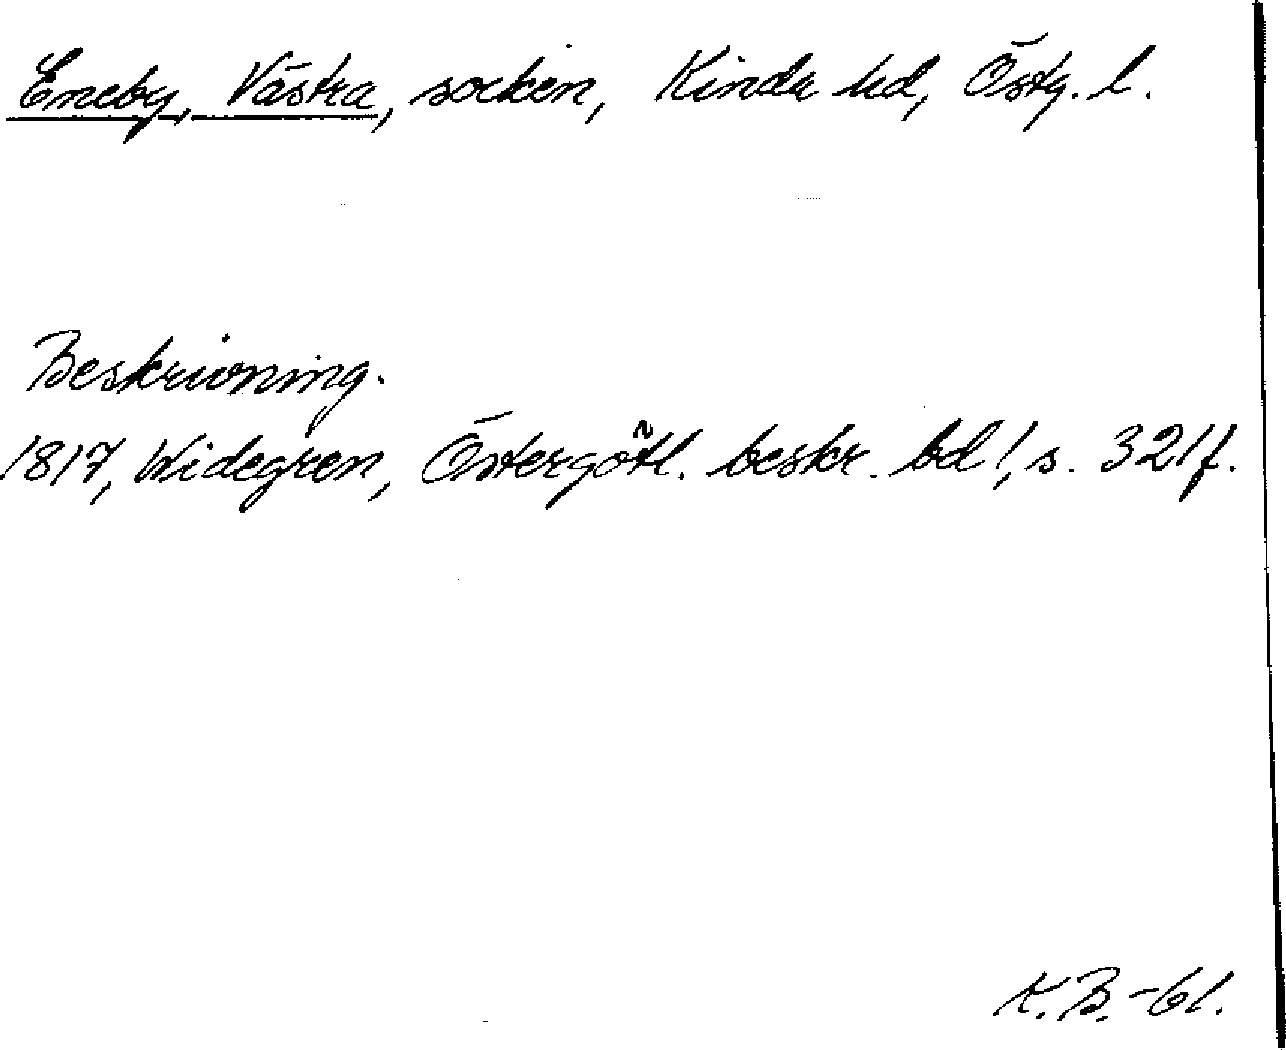 Eneby, Västra, socken, Kinda hd, Östg. l.
Beskrivning.
1817, Widegren, Östergötl. beskr. bd 1, s. 321 f.
K.B.-61.